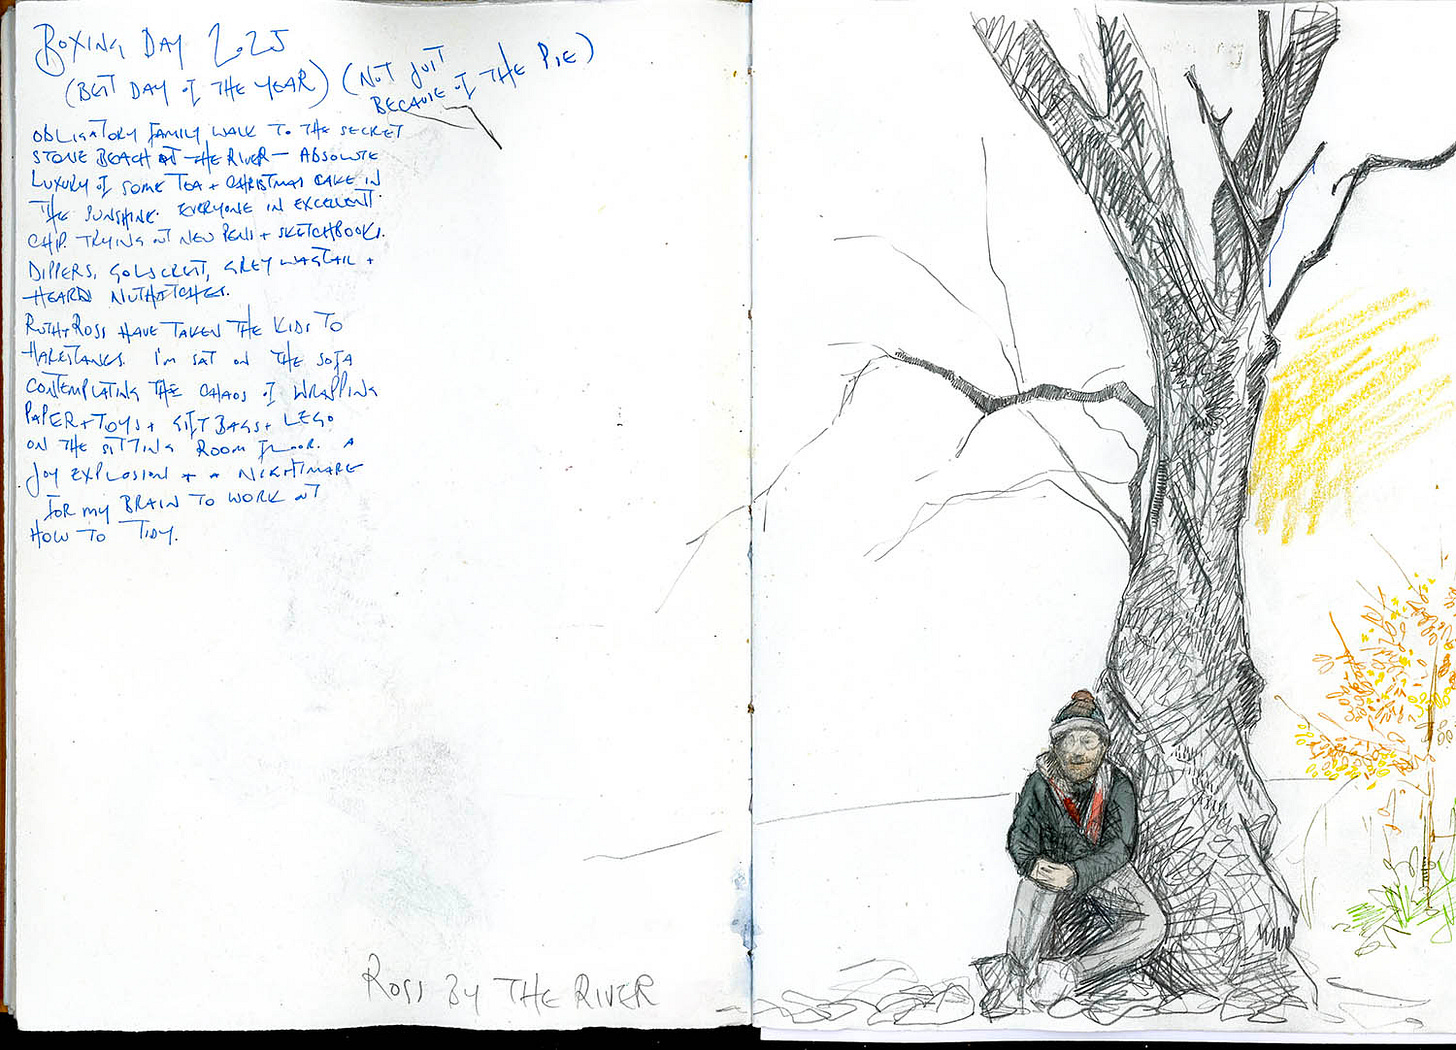 BOXING DAY 2025
(BEST DAY OF THE YEAR) (NOT JUST
BECAUSE OF THE PIE)
OBLIGATORY FAMILY WALK TO THE SECRET
STONE BEACH AT THE RIVER — ABSOLUTE
LUXURY OF SOME TEA + CHRISTMAS CAKE IN
THE SUNSHINE. EVERYONE IN EXCELLENT
CHIP. TRYING OUT NEW PENS + SKETCHBOOKS.
DIPPERS, GOLDCREST, GREY WAGTAIL +
HEARD NUTHATCHES.
RUTH + ROSS HAVE TAKEN THE KIDS TO
HARESTANES. I'M SAT ON THE SOFA
CONTEMPLATING THE CHAOS OF WRAPPING
PAPER + TOYS + GIFT BAGS + LEGO
ON THE SITTING ROOM FLOOR. A
JOY EXPLOSION + A NIGHTMARE
FOR MY BRAIN TO WORK OUT
HOW TO TIDY.
ROSS BY THE RIVER